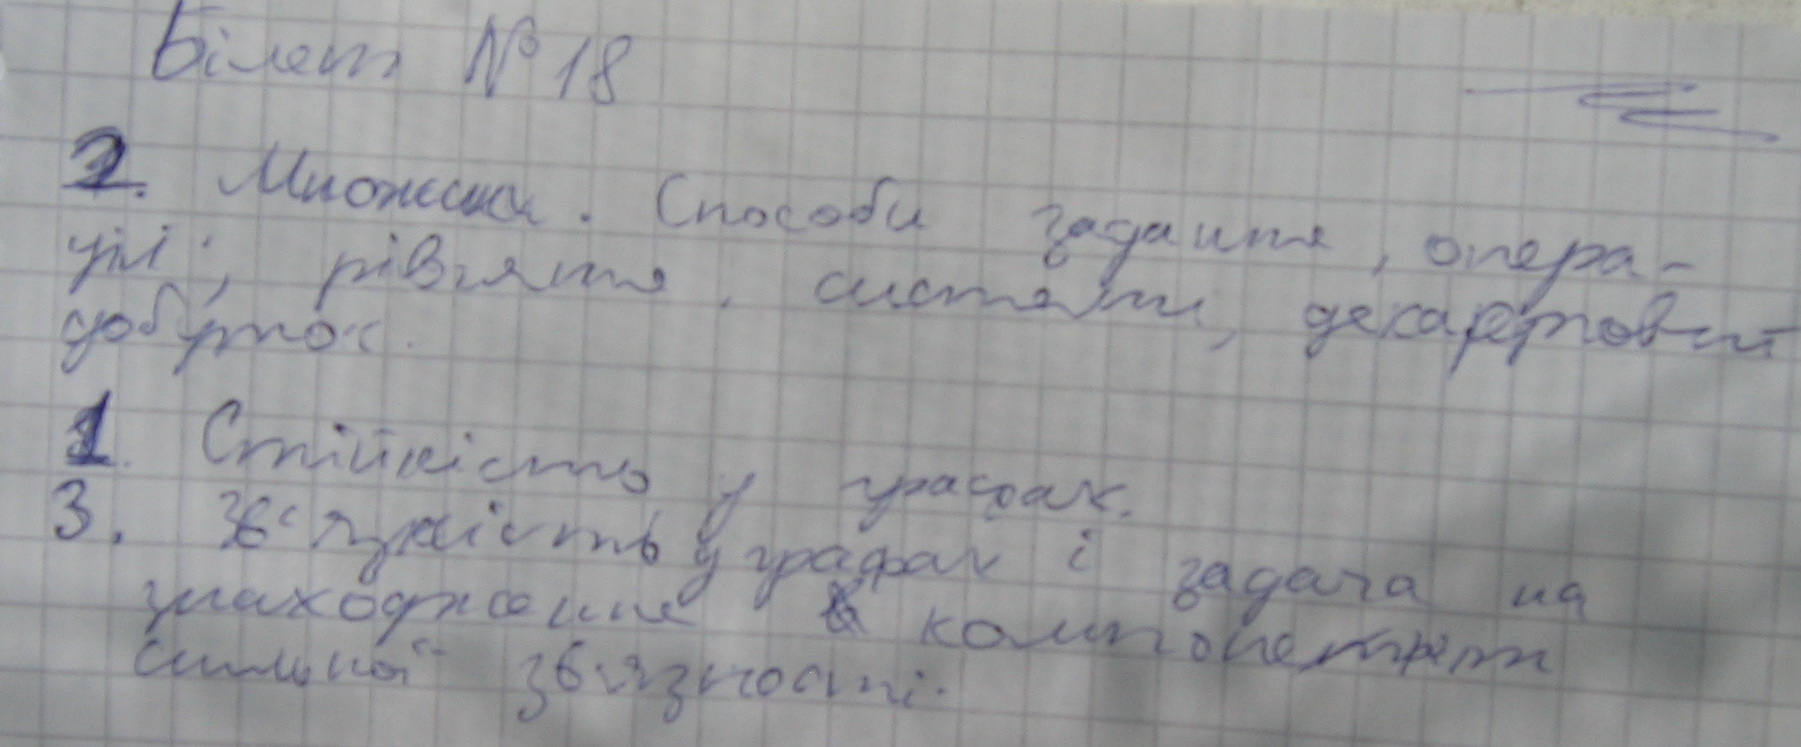 Білет № 18
2. Множини. Способи задання, опера-
ції, рівняння, системи, декартовий
добуток.
1. Стійкість у графах.
3. Зв'язність у графах і задача на
знаходження компоненти
сильної зв'язності.